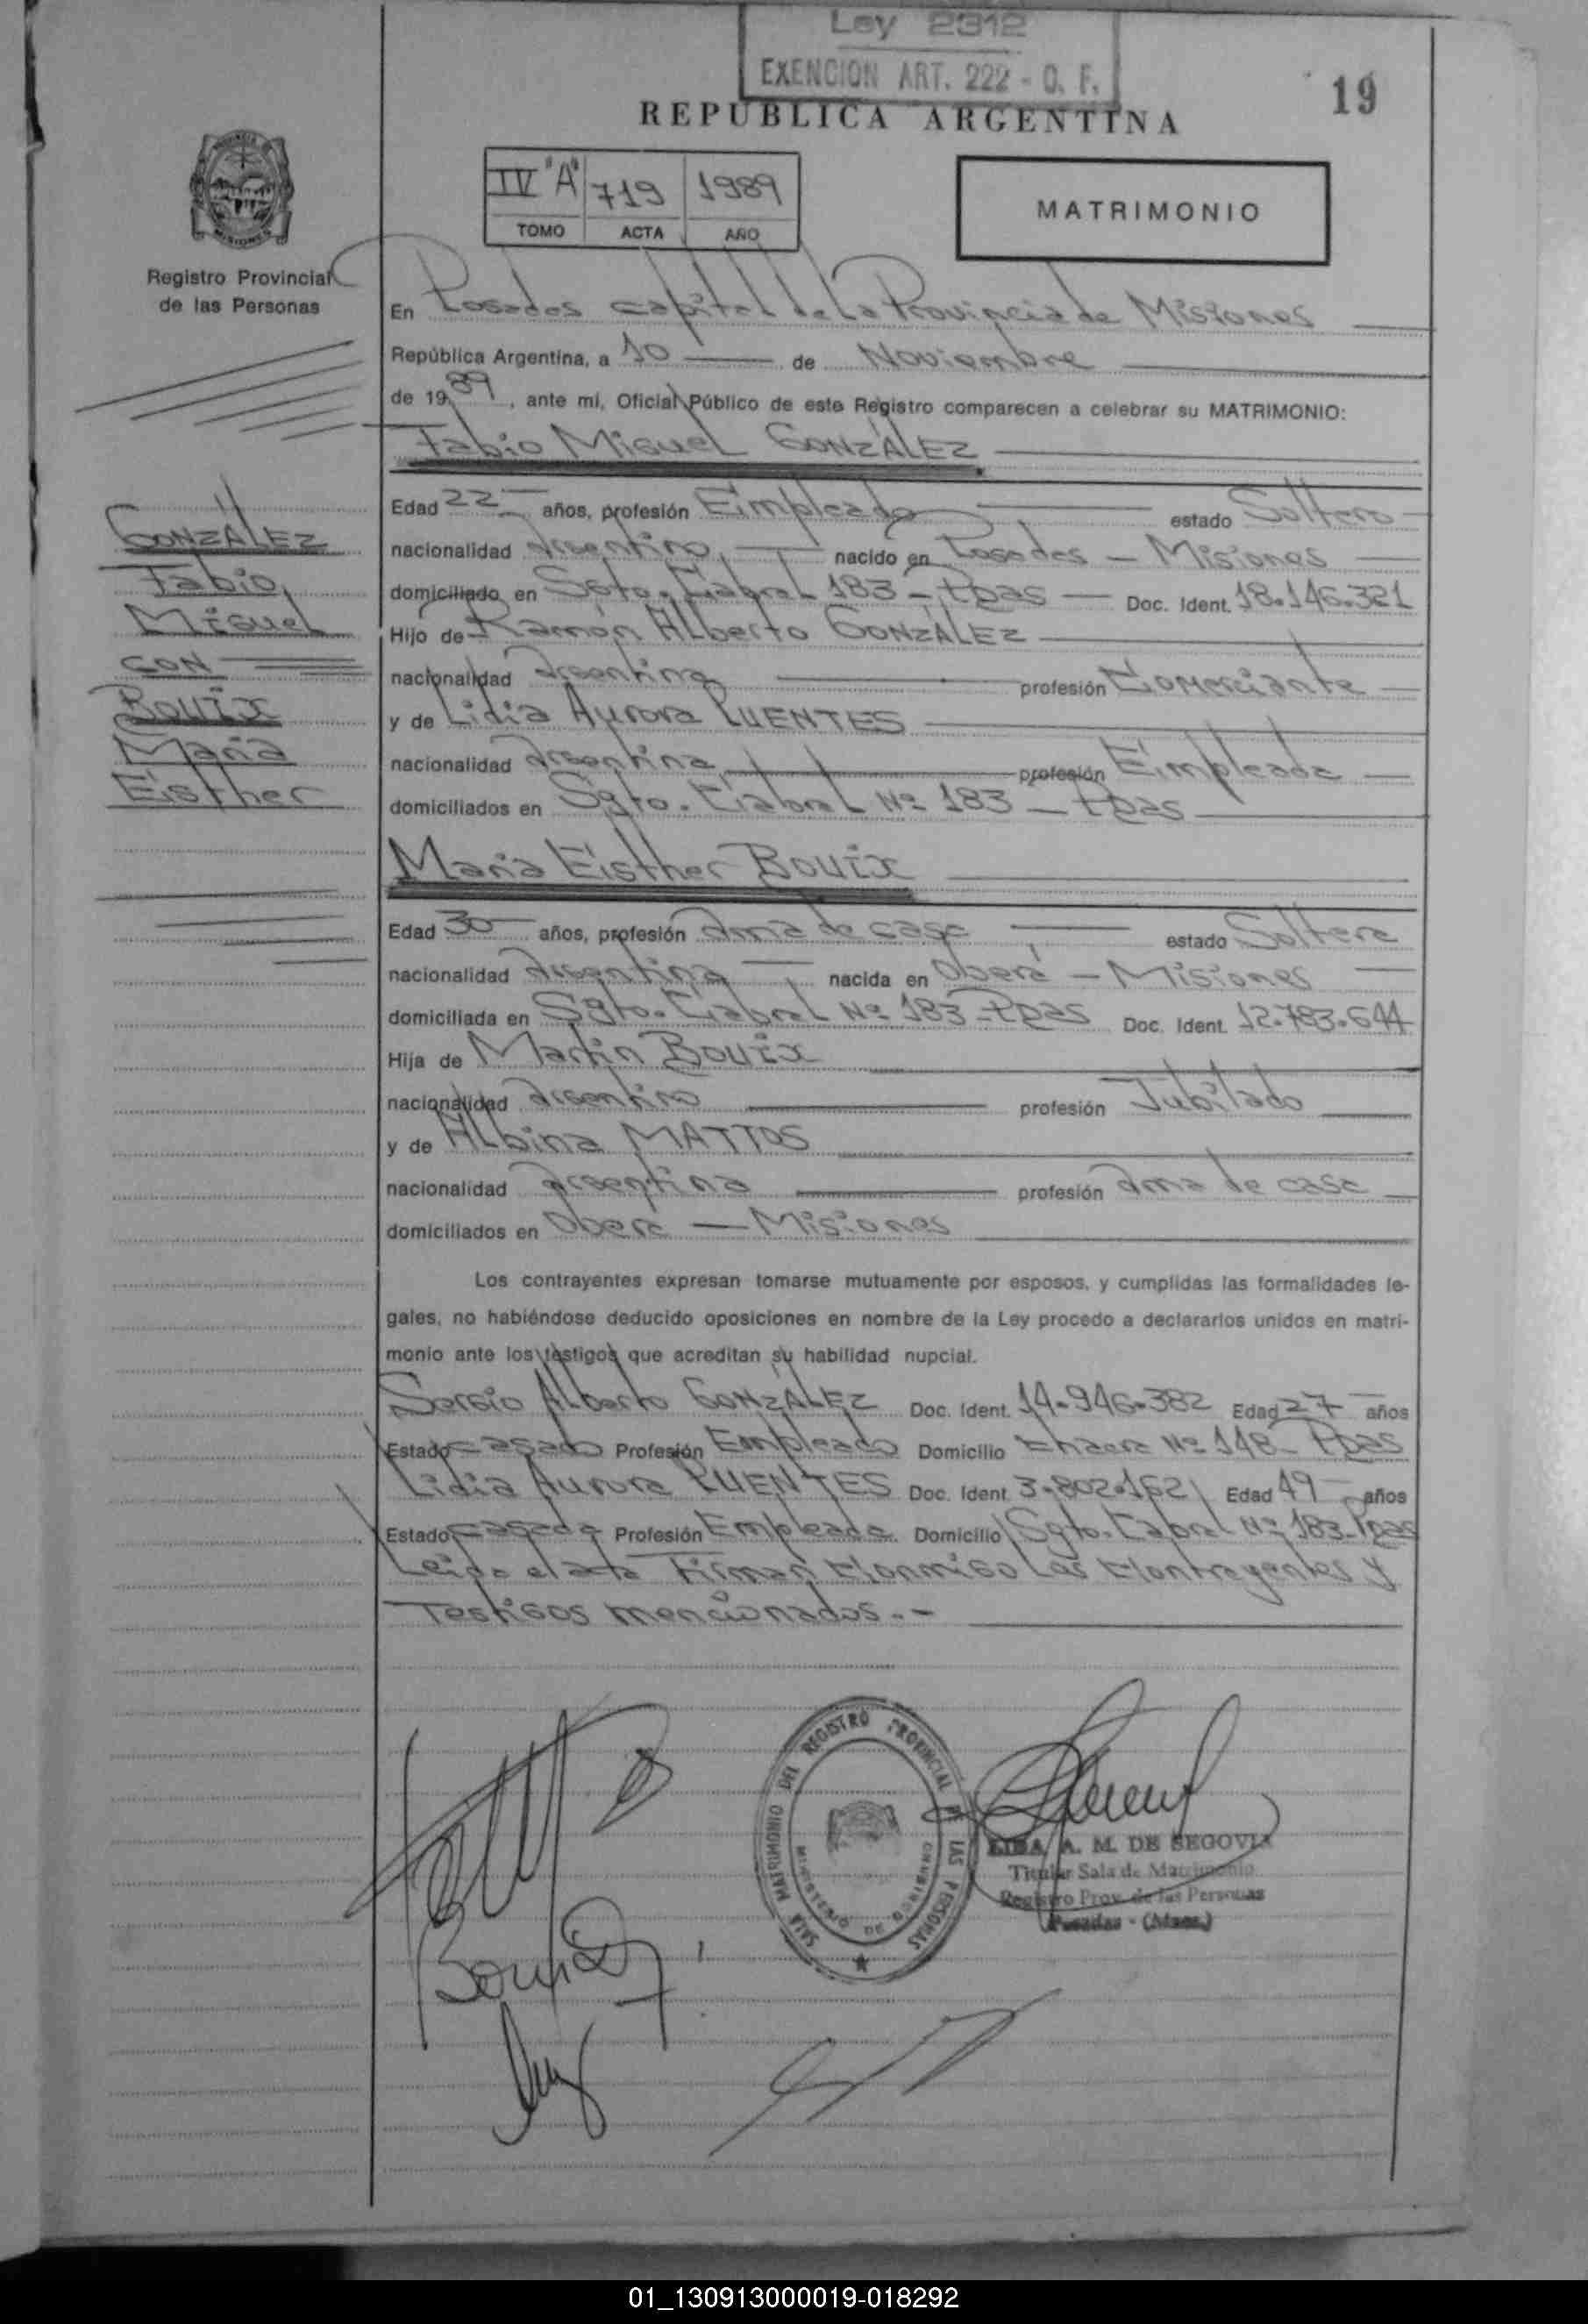 Ley 2312
EXENCION ART. 222 - O. F.
19
REPUBLICA ARGENTINA
IV "A" 719 1989
TOMO ACTA AÑO
MATRIMONIO
Registro Provincial
de las Personas
En Posadas capital de la Provincia de Misiones
República Argentina, a 10 de Noviembre
de 1989, ante mi, Oficial Público de este Registro comparecen a celebrar su MATRIMONIO:
Fabio Miguel GONZÁLEZ
Edad 22 años, profesión Empleado estado Soltero
nacionalidad Argentino, nacido en Posadas - Misiones
domiciliado en Sgto. Cabral 183 - Pdas Doc. Ident. 18.146.321
Hijo de Ramón Alberto GONZÁLEZ
nacionalidad Argentina profesión Comerciante
y de Lidia Aurora PUENTES
nacionalidad Argentina profesión Empleada
domiciliados en Sgto. Cabral Nº 183 - Pdas
GONZÁLEZ
Fabio
Miguel
CON
BOUIX
María
Esther
María Esther BOUIX
Edad 30 años, profesión Ama de casa estado Soltera
nacionalidad Argentina nacida en Oberá - Misiones
domiciliada en Sgto. Cabral Nº 183 - Pdas Doc. Ident. 12.783.644
Hija de Martín BOUIX
nacionalidad Argentino profesión Jubilado
y de Albina MATTOS
nacionalidad Argentina profesión Ama de casa
domiciliados en Oberá - Misiones
Los contrayentes expresan tomarse mutuamente por esposos, y cumplidas las formalidades le-
gales, no habiéndose deducido oposiciones en nombre de la Ley procedo a declararlos unidos en matri-
monio ante los testigos que acreditan su habilidad nupcial.
Sergio Alberto GONZÁLEZ Doc. Ident. 14.946.382 Edad 27 años
Estado casado Profesión Empleado Domicilio Chacra Nº 148 - Pdas
Lidia Aurora PUENTES Doc. Ident. 3.802.162 Edad 49 años
Estado casada Profesión Empleada Domicilio Sgto. Cabral Nº 183 - Pdas
Leída el acta Firman Conmigo Los Contrayentes y
Testigos mencionados.-
SALA MATRIMONIO DEL REGISTRO PROVINCIAL DE LAS PERSONAS
MINISTERIO DE GOBIERNO
A. M. DE SEGOVIA
Titular Sala de Matrimonio
Registro Prov. de las Personas
Posadas - (Mnes.)
01_130913000019-018292